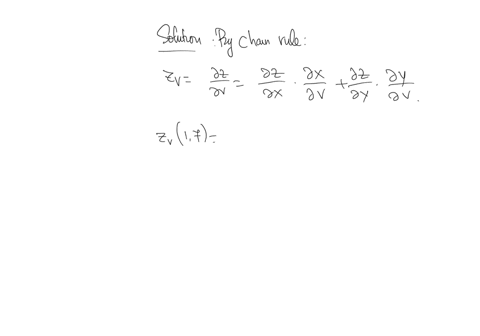 Solution : By Chain rule:
z_v = ∂z/∂v = ∂z/∂x · ∂x/∂v + ∂z/∂y · ∂y/∂v .
z_v (1,7) =